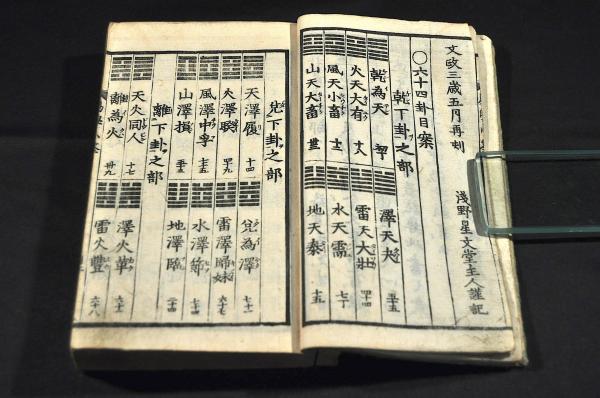 文政三歳五月再刻 浅野星文堂主人謹記
○六十四卦目案
乾下卦之部
乾為天 澤天夬
火天大有 廿八 雷天大壮 四十四
風天小畜 水天需 七丁
山天大畜 地天泰 十五
兌下卦之部
天澤履 十四 兌為澤 七十一
火澤睽 四十九 雷澤帰妹 六十七
風澤中孚 七十五 水澤節 七十四
山澤損 地澤臨 二十四
離下卦之部
天火同人 十七 澤火革 六十一
離為火 卅九 雷火豐 六十八